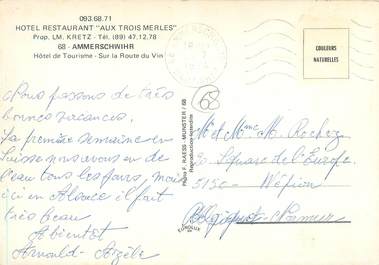 093.68.71
HOTEL RESTAURANT "AUX TROIS MERLES"
Prop. LM. KRETZ - Tél. (89) 47.12.78
68 - AMMERSCHWIHR
Hôtel de Tourisme - Sur la Route du Vin
COULEURS
NATURELLES
68
Nous passons de très
bonnes vacances.
La première semaine en
Suisse nous avons eu de
l'eau tous les jours, mais
ici en Alsace il fait
très beau
A bientôt
Arnould-
Photos F. RAESS - MUNSTER / 68
Reproduction interdite
Mr et Mme M.
30 Square de l'Europe
5150 - Wépion
Belgique - Namur